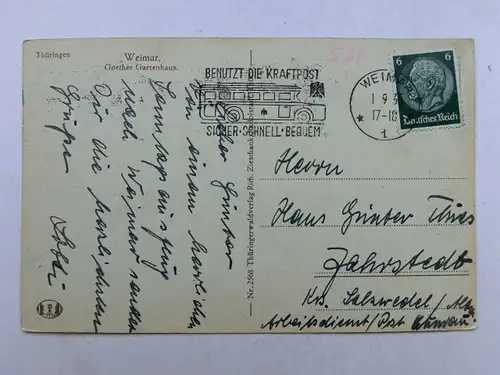 Thüringen
Weimar,
Goethes Gartenhaus.
BENUTZT DIE KRAFTPOST
SICHER·SCHNELL·BEQUEM
WEIMAR
1 9 3
17-18
* 1
6 6
Deutsches Reich
Lieber Günter
Von einem herrlichen
Samstagausflug
nach Weimar sendet
Dir die herzlichsten
Grüße
Nr. 2568 Thüringerwaldverlag Rich. Zieschank
Herrn
Hans Günter
Jahrstedt
Kr. Salzwedel / Altm.
Arbeitsdienst/Post